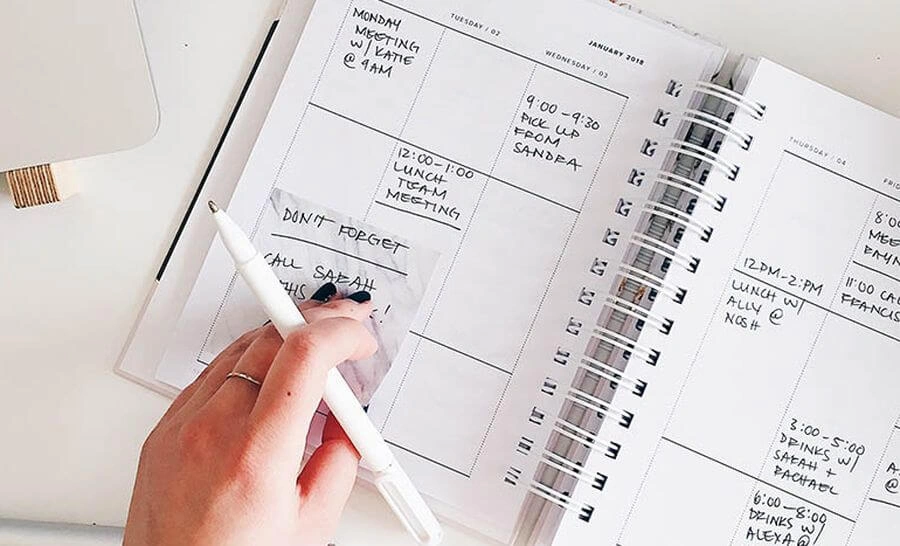 MONDAY
MEETING
W/ KATIE
@ 9AM
TUESDAY / 02
JANUARY 2018
WEDNESDAY / 03
9:00-9:30
PICK UP
FROM
SANDRA
12:00-1:00
LUNCH
TEAM
MEETING
DON'T FORGET
CALL SARAH
THIS
!
THURSDAY / 04
12PM-2PM
LUNCH W/
ALLY @
NOSH
3:00-5:00
DRINKS W/
SARAH +
RACHAEL
6:00-8:00
DRINKS W/
ALEXA @
11:00